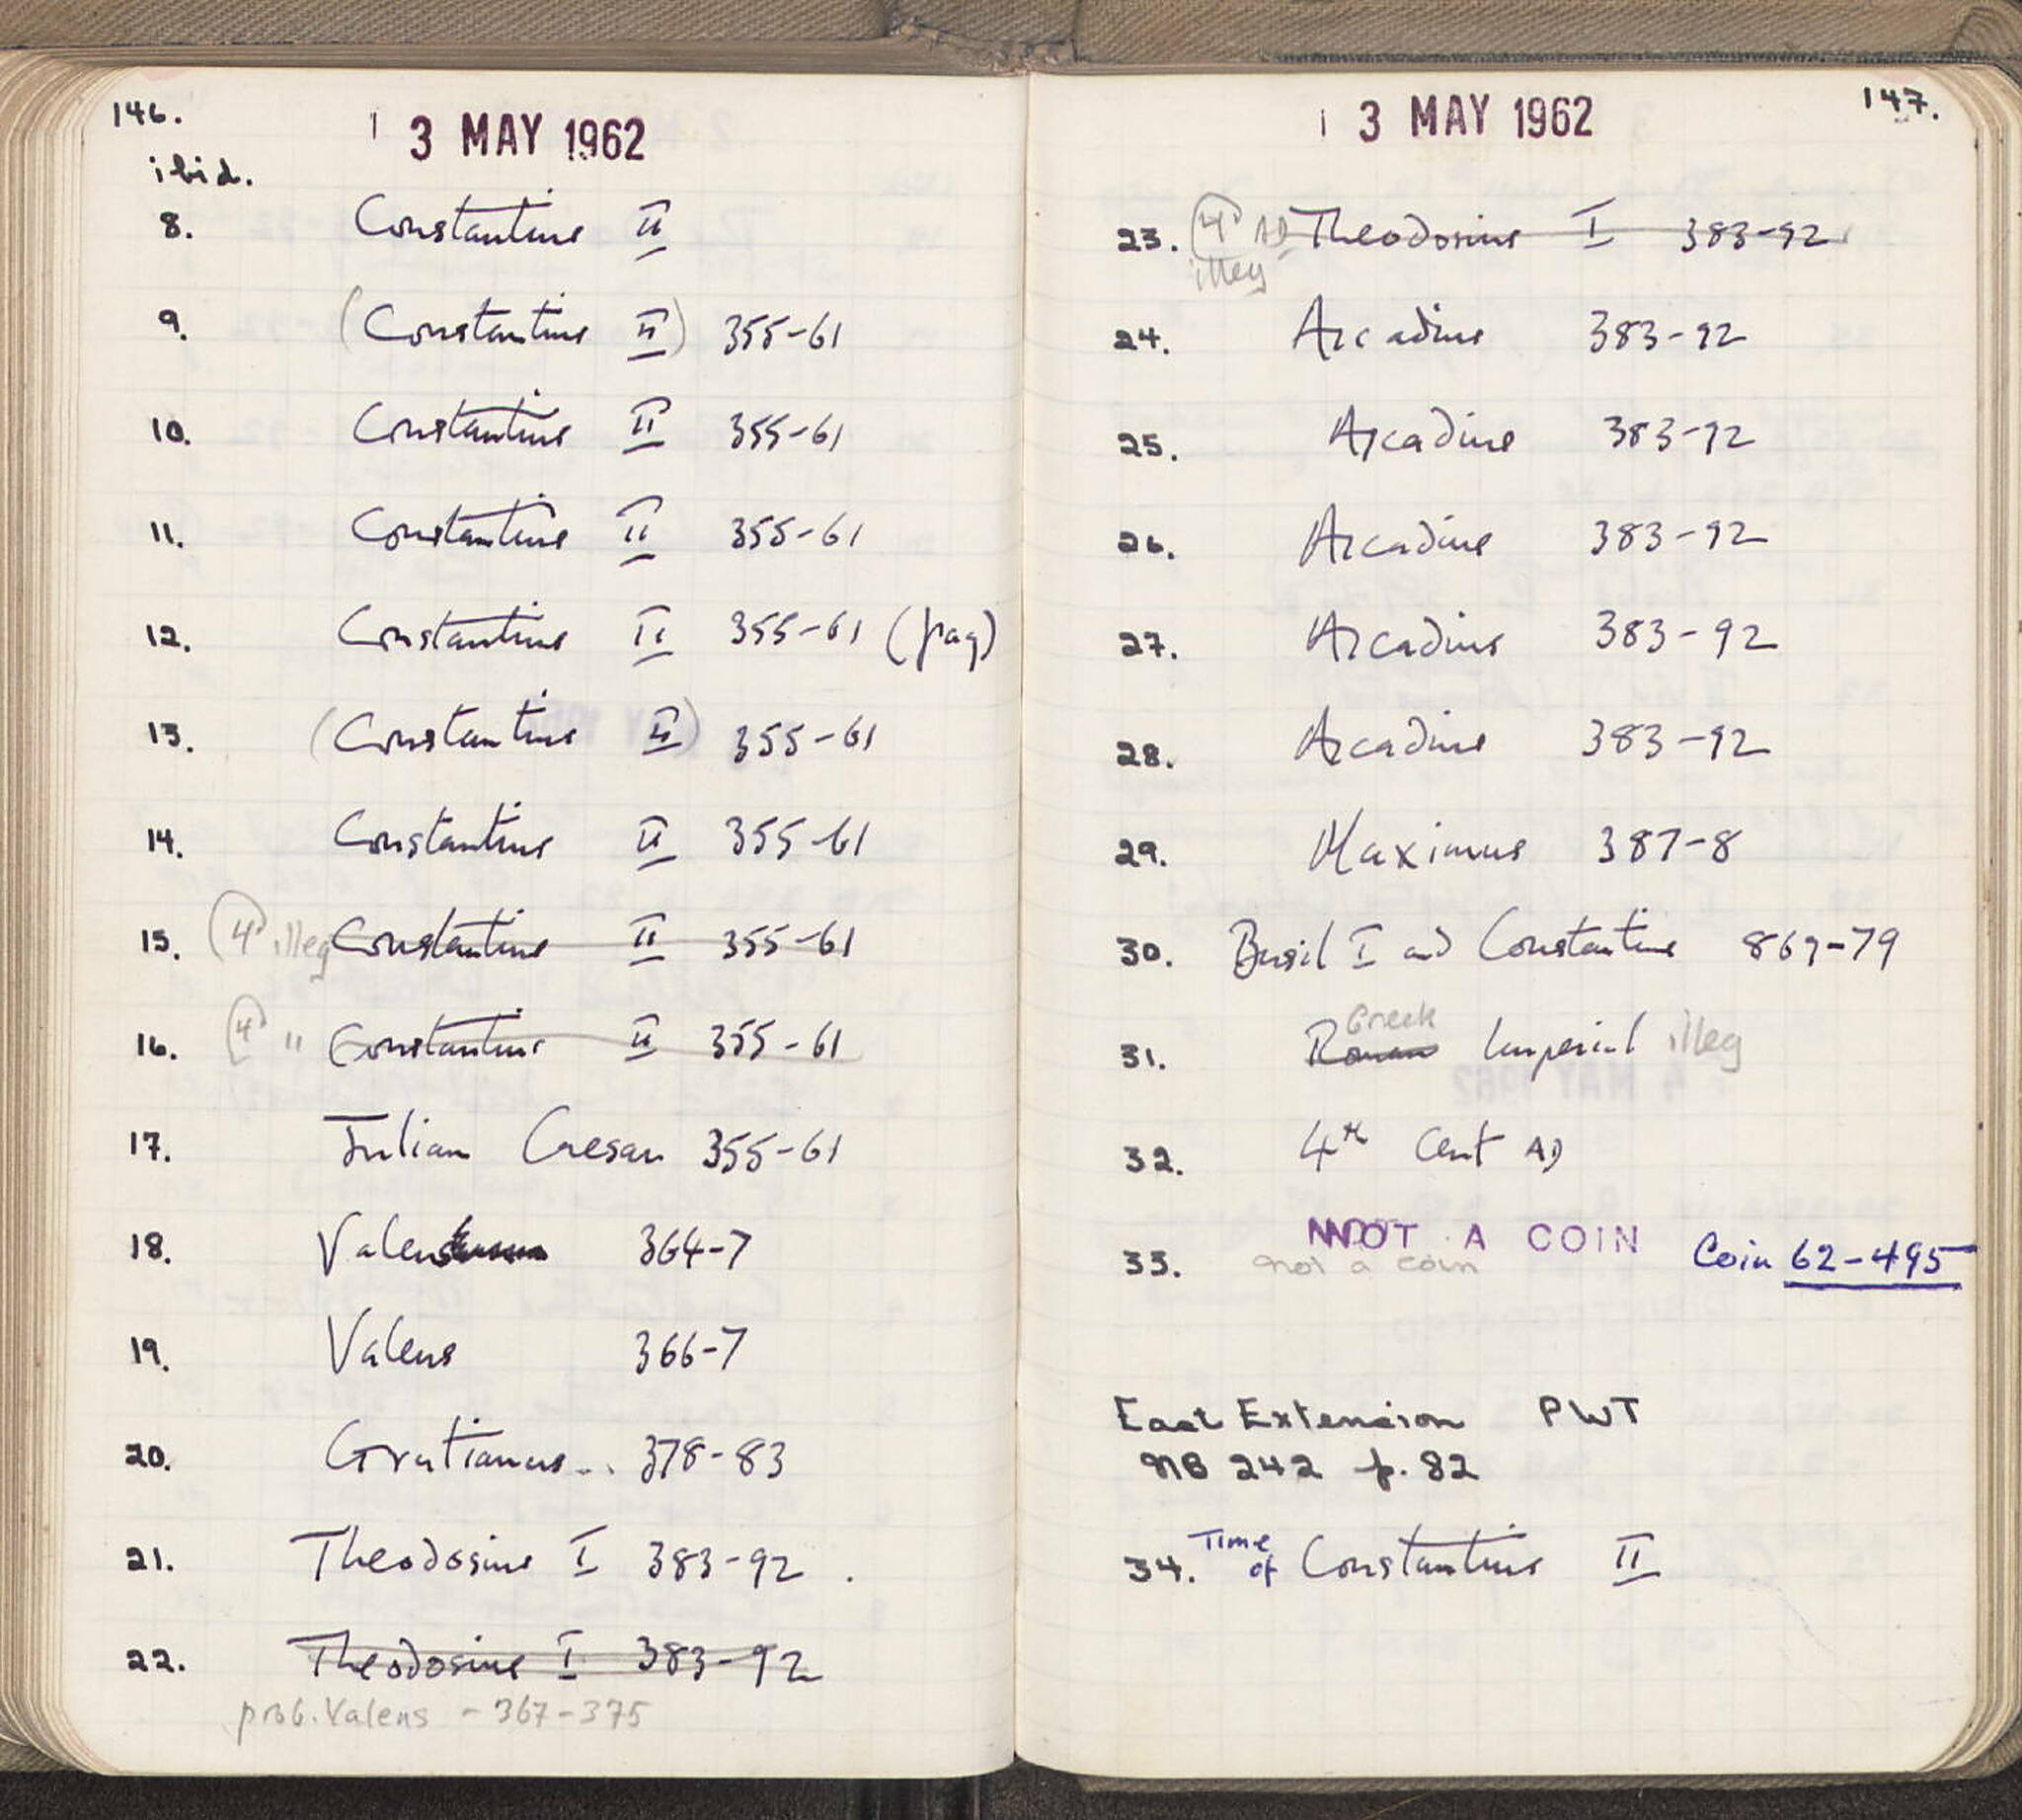 146.
3 MAY 1962
ibid.
8. Constantius II
9. (Constantius II) 355-61
10. Constantius II 355-61
11. Constantius II 355-61
12. Constantius II 355-61 (frag)
13. (Constantius II) 355-61
14. Constantius II 355-61
15. (4) illeg Constantius II 355-61
16. (4) " Constantius II 355-61
17. Julian Caesar 355-61
18. Valens 364-7
19. Valens 366-7
20. Gratianus... 378-83
21. Theodosius I 383-92.
22. Theodosius I 383-92
prob. Valens - 367-375
147.
3 MAY 1962
23. (4) AD Theodosius I 383-92
illeg
24. Arcadius 383-92
25. Arcadius 383-92
26. Arcadius 383-92
27. Arcadius 383-92
28. Arcadius 383-92
29. Maximus 387-8
30. Basil I and Constantine 869-79
Greek
31. Roman Imperial illeg
32. 4th Cent AD
NOT A COIN
33. not a coin Coin 62-495
East Extension PWT
NB 242 p. 82
34. Time of Constantius II